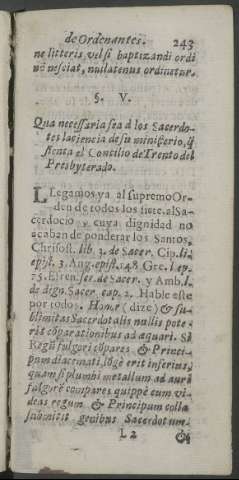 de Ordenantes. 243
ne litteris, vel si baptizandi ordi
nẽ nesciat, nullatenus ordinetur.
§. V.
Qua necessaria sea â los Sacerdo-
tes la ciencia de su ministerio, q̃
sienta el Concilio de Trento del
Presbyterado.
LLegamos ya al supremo Or-
den de todos los siete, al Sa-
cerdocio, cuya dignidad no
acaban de ponderar los Santos,
Chrisost. lib. 3. de Sacer. Cip. li.
epist. 3. Ang. epist. 148 Gre. l ep.
75. Efren. ser. de Sacer. y Amb. l.
de dign. Sacer cap. 2. Hable este
por todos. Honor (dize) & su-
blimitas Sacerdotalis nullis pote-
rit cõparationibus ad æquari. Si
Regũ fulgori cõpares & Princi-
pum diadmati, lõgè erit inferius,
quam si plumbi metallum ad auri
fulgorẽ compares quippè cum vi-
deas regum & Principum colla
submitti genibus Sacerdotum.
L 2 &